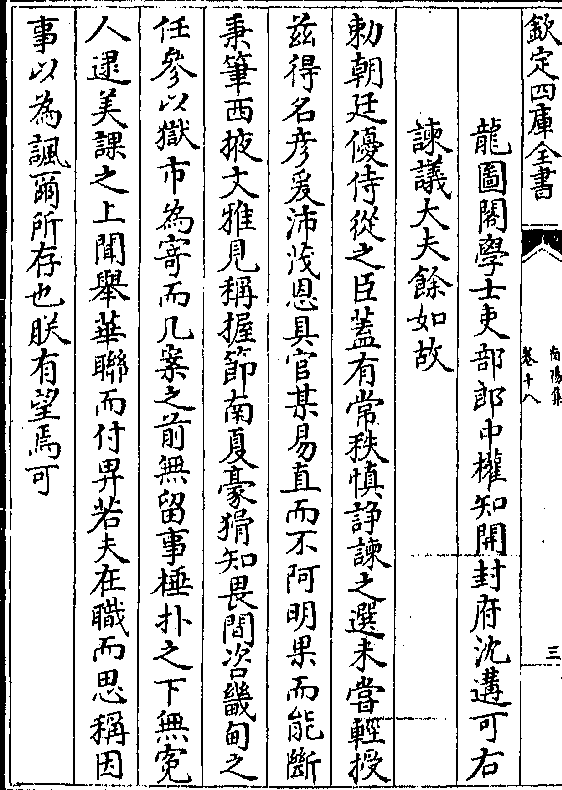 欽定四庫全書
南陽集
卷十八
三
龍圖閣學士吏部郎中權知開封府沈遘可右
諫議大夫餘如故
勅朝廷優侍從之臣蓋有常秩慎諍諫之選未嘗輕授
兹得名彦爰沛茂恩具官某易直而不阿明果而能斷
秉筆西掖大雅見稱握節南夏豪猾知畏間咨畿甸之
任參以獄市為寄而几案之前無留事棰扑之下無寃
人遝美課之上聞舉華聯而付畀若夫在職而思稱因
事以為諷爾所存也朕有望焉可